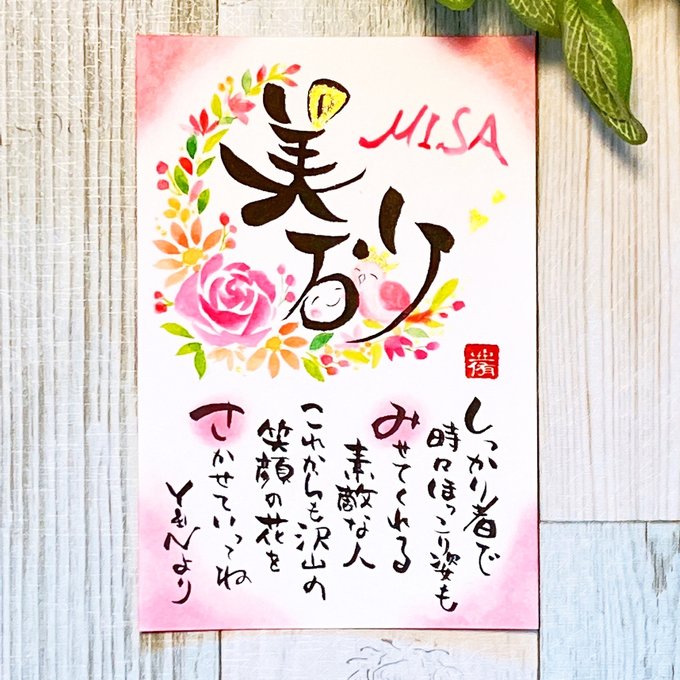 美砂
MISA
しっかり者で
時々ほっこり姿も
みせてくれる
素敵な人
これからも沢山の
笑顔の花を
さかせていってね
Y&Nより